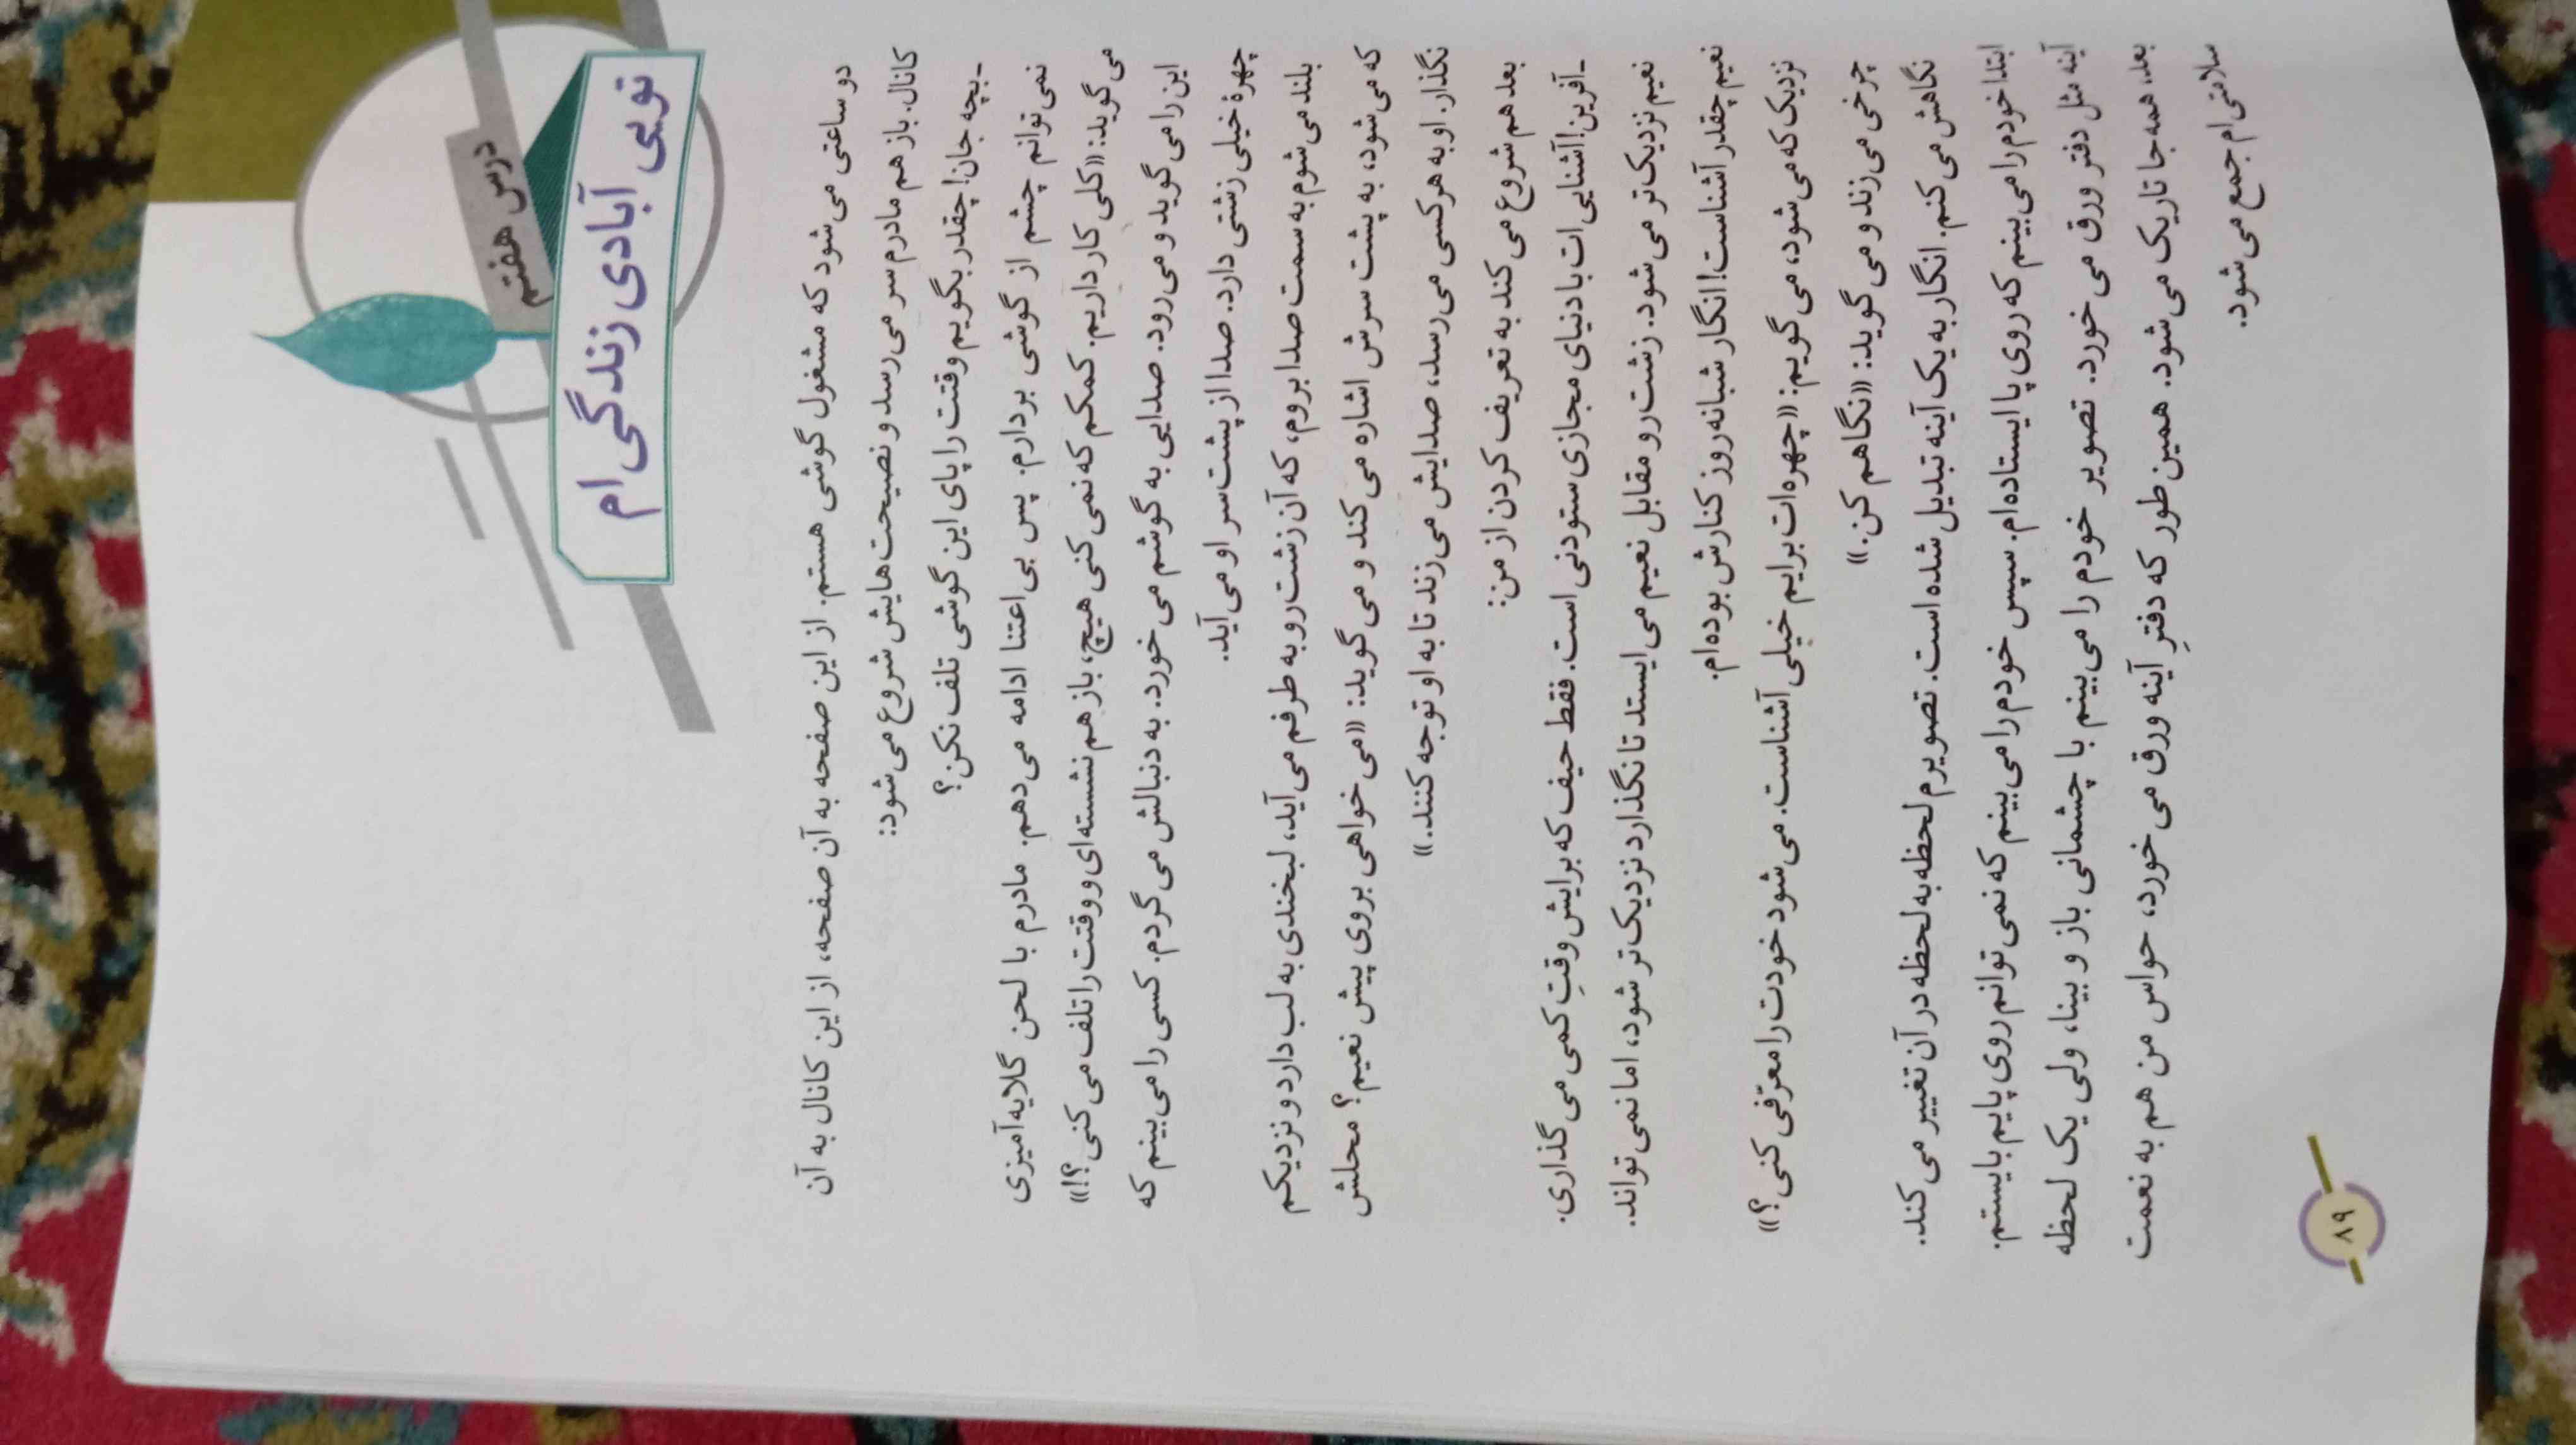 درس هفتم
تویی آبادی زندگی‌ام
دو ساعتی می‌شود که مشغول گوشی هستم. از این صفحه به آن صفحه، از این کانال به آن
کانال. باز هم مادرم سر می‌رسد و نصیحت‌هایش شروع می‌شود:
ـ بچه جان! چقدر بگویم وقتت را پای این گوشی تلف نکن؟
نمی‌توانم چشم از گوشی بردارم. پس بی‌اعتنا ادامه می‌دهم. مادرم با لحن گلایه‌آمیزی
می‌گوید: «کلی کار داریم. کمکم که نمی‌کنی هیچ، باز هم نشسته‌ای و وقتت را تلف می‌کنی؟!»
این را می‌گوید و می‌رود. صدایی به گوشم می‌خورد. به دنبالش می‌گردم. کسی را می‌بینم که
چهرهٔ خیلی زشتی دارد. صدا از پشت سر او می‌آید.
بلند می‌شوم به سمت صدا بروم، که آن زشت‌رو به طرفم می‌آید، لبخندی به لب دارد و نزدیکم
که می‌شود، به پشت سرش اشاره می‌کند و می‌گوید: «می‌خواهی بروی پیش نعیم؟ محلش
نگذار. او به هر کسی می‌رسد، صدایش می‌زند تا به او توجه کنند.»
بعد هم شروع می‌کند به تعریف کردن از من:
ـ آفرین! آشنایی‌ات با دنیای مجازی ستودنی است. فقط حیف که برایش وقتِ کمی می‌گذاری.
نعیم نزدیک‌تر می‌شود. زشت‌رو مقابل نعیم می‌ایستد تا نگذارد نزدیک‌تر شود، اما نمی‌تواند.
نعیم چقدر آشناست! انگار شبانه‌روز کنارش بوده‌ام.
نزدیک که می‌شود، می‌گویم: «چهره‌ات برایم خیلی آشناست. می‌شود خودت را معرّفی کنی؟»
چرخی می‌زند و می‌گوید: «نگاهم کن.»
نگاهش می‌کنم. انگار به یک آینه تبدیل شده است. تصویرم لحظه به لحظه در آن تغییر می‌کند.
ابتدا خودم را می‌بینم که روی پا ایستاده‌ام. سپس خودم را می‌بینم که نمی‌توانم روی پایم بایستم.
آینه مثل دفتر ورق می‌خورد. تصویر خودم را می‌بینم با چشمانی باز و بینا، ولی یک لحظه
بعد، همه جا تاریک می‌شود. همین طور که دفترِ آینه ورق می‌خورد، حواس من هم به نعمت
سلامتی‌ام جمع می‌شود.
۸۹